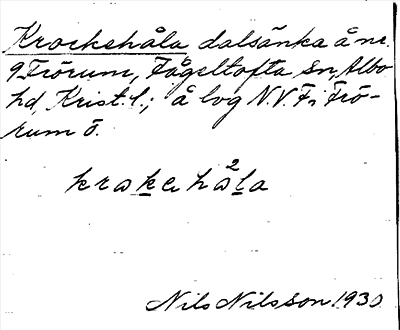 Krockehåla dalsänka å nr.
9 Frörum, Fågeltofta sn, Albo
hd, Krist. l.; å log N.V. Fr. Frö-
rum ö.
krakehå²la
Nils Nilsson 1930